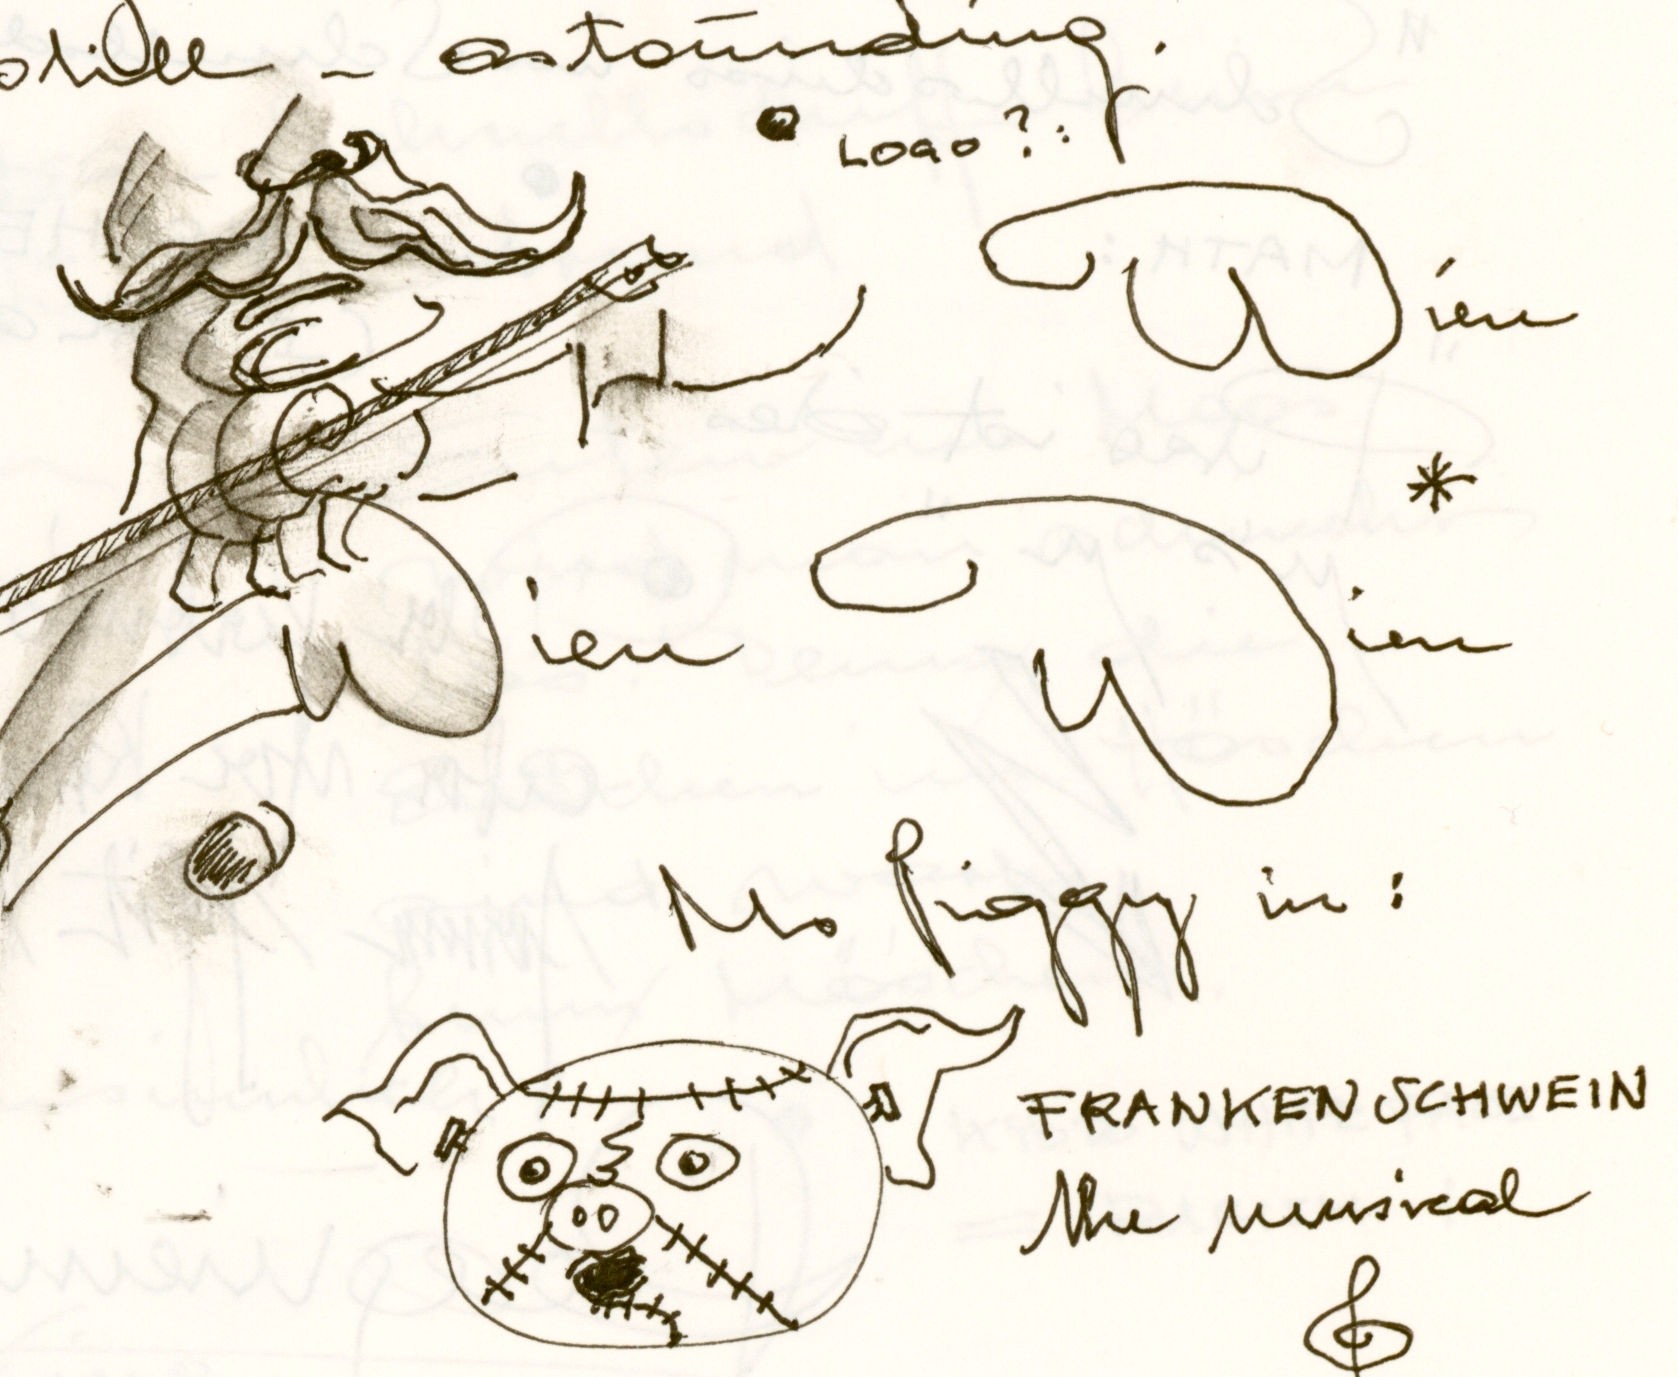 still – astounding.
LOGO?:
Wien
*
Wien Wien
Ms Piggy in:
FRANKENSCHWEIN
the musical